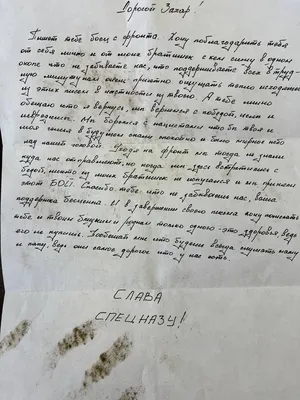 Дорогой Захар!
Пишет тебе боец с фронта. Хочу поблагодарить тебя
от себя лично и от моих братишек с кем сижу в одном
окопе что не забываете нас, что поддерживаете всех в труд-
ную минуту нам очень приятно ощущать тепло исходящее
из этих писем в частности из твоего. А тебе лично
обещаю что я вернусь, мы вернемся с победой, целы и
невредимы. Мы боремся с нацистами что бы твоя и
моя семья в будущем спали спокойно и было мирное небо
над нашей головой. Уходя на фронт мы тогда не знали
куда нас отправляют, но когда мы здесь встретились с
бедой, никто из моих братишек не испугался и мы приняли
этот БОЙ. Спасибо тебе что не забываешь нас, ваша
поддержка бесценна. И в завершении своего письма хочу пожелать
тебе и твоим близким и родным только одного - это здоровья ведь
его не купишь. Пообещай мне что будешь всегда слушать маму
и папу, ведь они самое дорогое что у нас есть.
СЛАВА
СПЕЦНАЗУ!